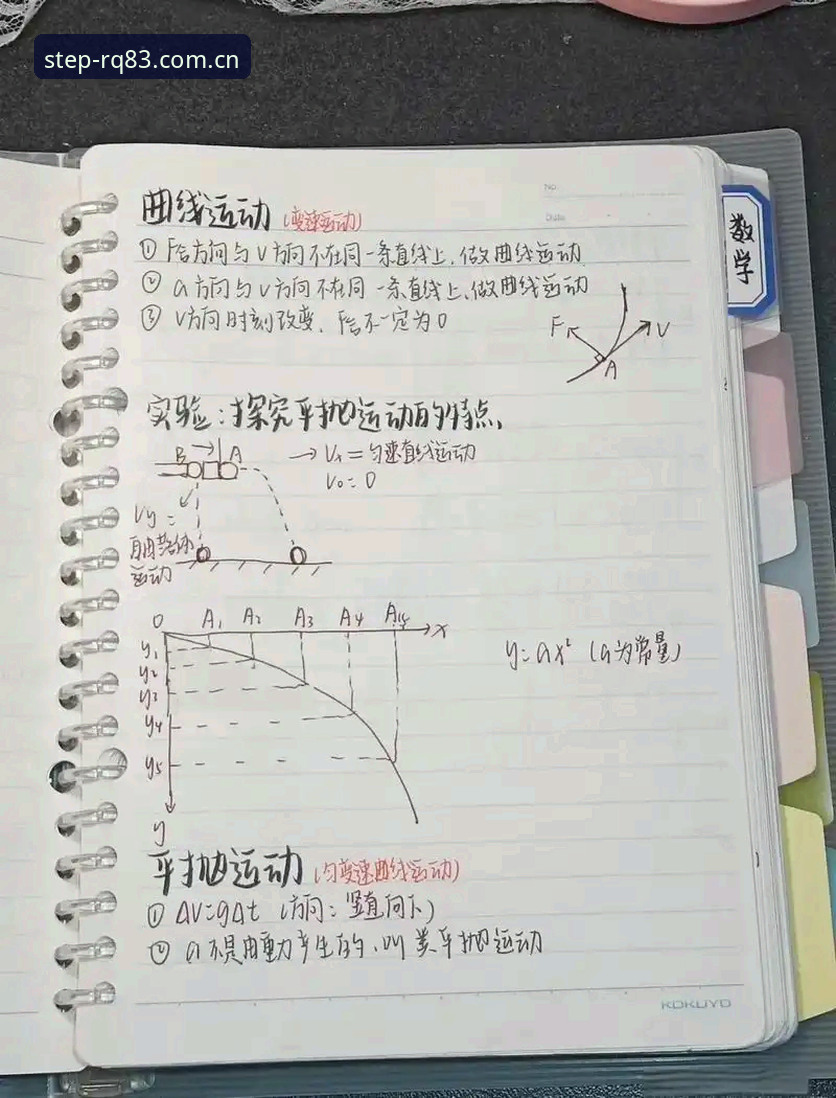 step-rq83.com.cn
No.
Date
数学
曲线运动 (变速运动)
① F合方向与V方向不在同一条直线上,做曲线运动
② a方向与V方向不在同一条直线上,做曲线运动
③ V方向时刻改变, F合不一定为0
F V
A
实验:探究平抛运动的特点、
B A → Vx = 匀速直线运动
V₀ = 0
Vy =
自由落体
运动
O A₁ A₂ A₃ A₄ x
y₁
y₂
y₃
y₄
y₅
y
y = ax² (a为常量)
平抛运动 (匀变速曲线运动)
① ΔV=gΔt (方向: 竖直向下)
② a不是由重力产生的,叫类平抛运动
KOKUYO